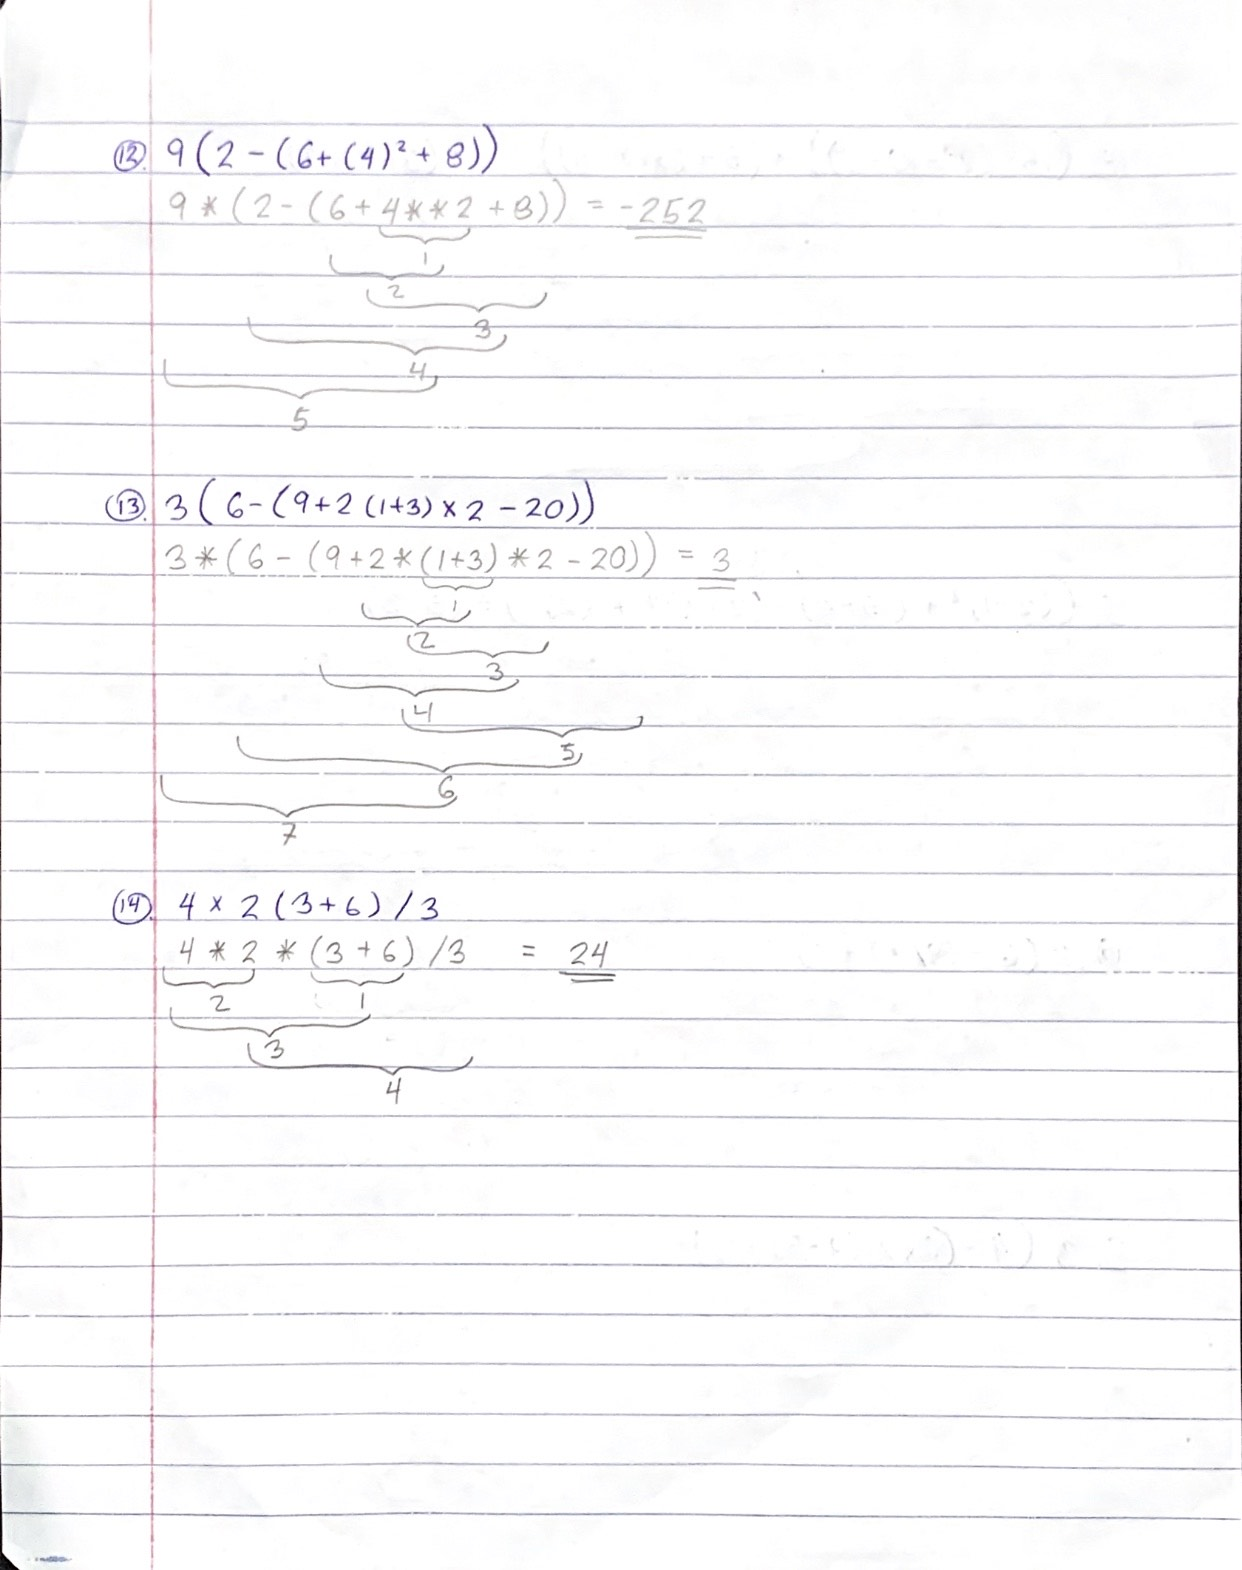 12. 9(2-(6+(4)²+8))
9*(2-(6+4**2+8)) = -252
1
2
3
4
5
13. 3(6-(9+2(1+3)×2-20))
3*(6-(9+2*(1+3)*2-20)) = 3
1
2
3
4
5
6
7
14. 4×2(3+6)/3
4*2*(3+6)/3 = 24
2 1
3
4